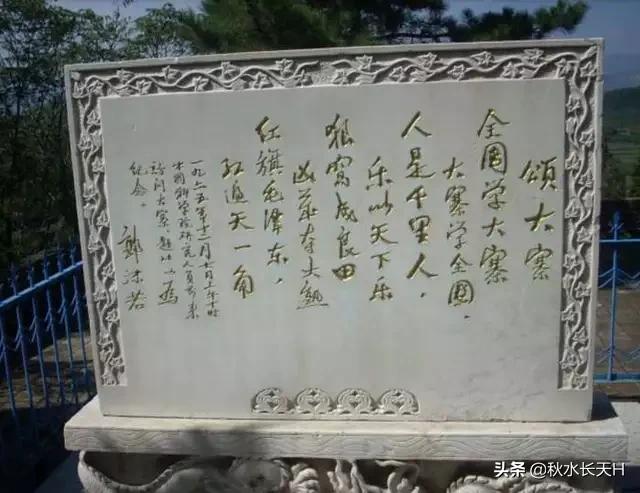 颂大寨
全国学大寨
大寨学全国，
人是千里人，
乐以天下乐
狼窝成良田
凶年夺大熟
红旗毛泽东，
红遍天一角
一九六五年十二月
中国科学院研究人员前来
访问大寨题此以为
纪念。郭沫若
头条 @秋水长天H